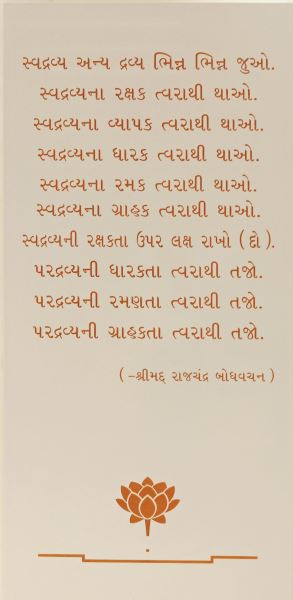 સ્વદ્રવ્ય અન્ય દ્રવ્ય ભિન્ન ભિન્ન જુઓ.
સ્વદ્રવ્યના રક્ષક ત્વરાથી થાઓ.
સ્વદ્રવ્યના વ્યાપક ત્વરાથી થાઓ.
સ્વદ્રવ્યના ધારક ત્વરાથી થાઓ.
સ્વદ્રવ્યના રમક ત્વરાથી થાઓ.
સ્વદ્રવ્યના ગ્રાહક ત્વરાથી થાઓ.
સ્વદ્રવ્યની રક્ષકતા ઉપર લક્ષ રાખો ( દો ).
પરદ્રવ્યની ધારકતા ત્વરાથી તજો.
પરદ્રવ્યની રમણતા ત્વરાથી તજો.
પરદ્રવ્યની ગ્રાહકતા ત્વરાથી તજો.
( -શ્રીમદ્ રાજચંદ્ર બોધવચન )